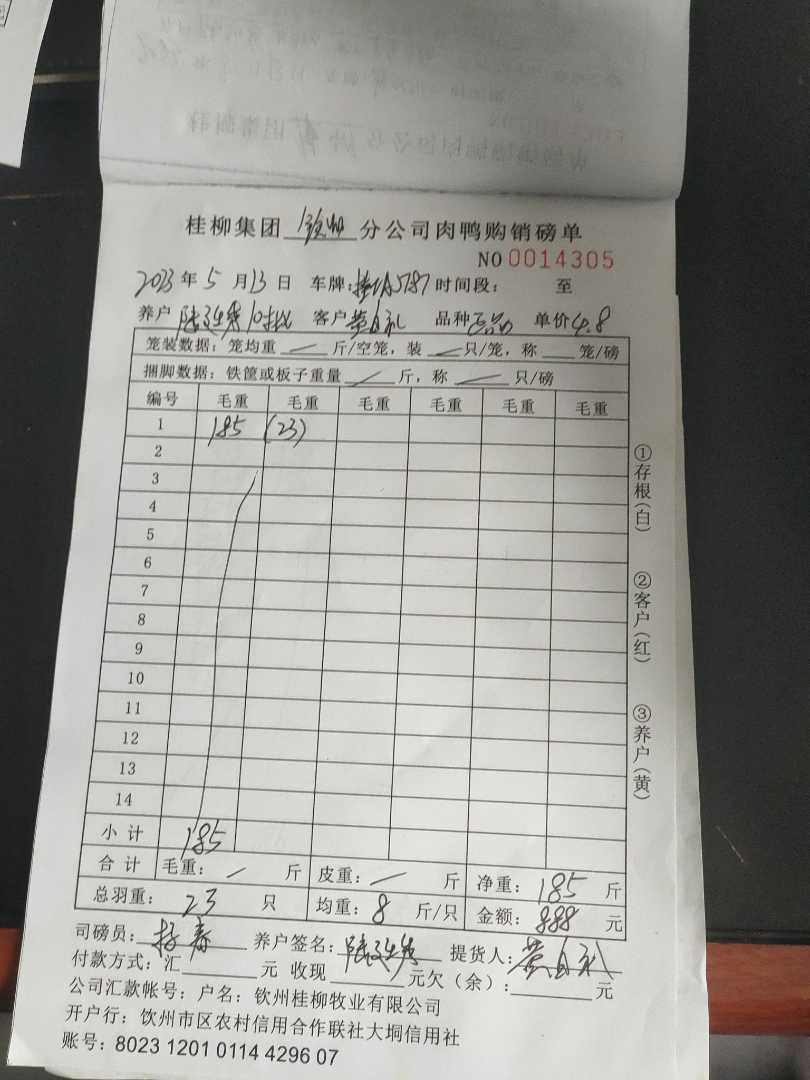 桂柳集团 钦州 分公司肉鸭购销磅单
NO 0014305
2023 年 5 月 13 日 车牌: 桂A5787 时间段: 至
养户 10批 客户 黄自礼 品种 正品 单价 4.8
笼装数据: 笼均重 / 斤/空笼, 装 / 只/笼, 称 笼/磅
捆脚数据: 铁筐或板子重量 / 斤, 称 / 只/磅
编号 毛重 毛重 毛重 毛重 毛重 毛重
1 185 (23)
2
3
4
5
6
7
8
9
10
11
12
13
14
小计 185
合计 毛重: / 斤 皮重: / 斤 净重: 185 斤
总羽重: 23 只 均重: 8 斤/只 金额: 888 元
司磅员: 杨春 养户签名: 提货人: 黄自礼
付款方式: 汇 元 收现 元欠(余): 元
公司汇款帐号: 户名: 钦州桂柳牧业有限公司
开户行: 钦州市区农村信用合作联社大垌信用社
账号: 8023 1201 0114 4296 07
①存根(白)
②客户(红)
③养户(黄)